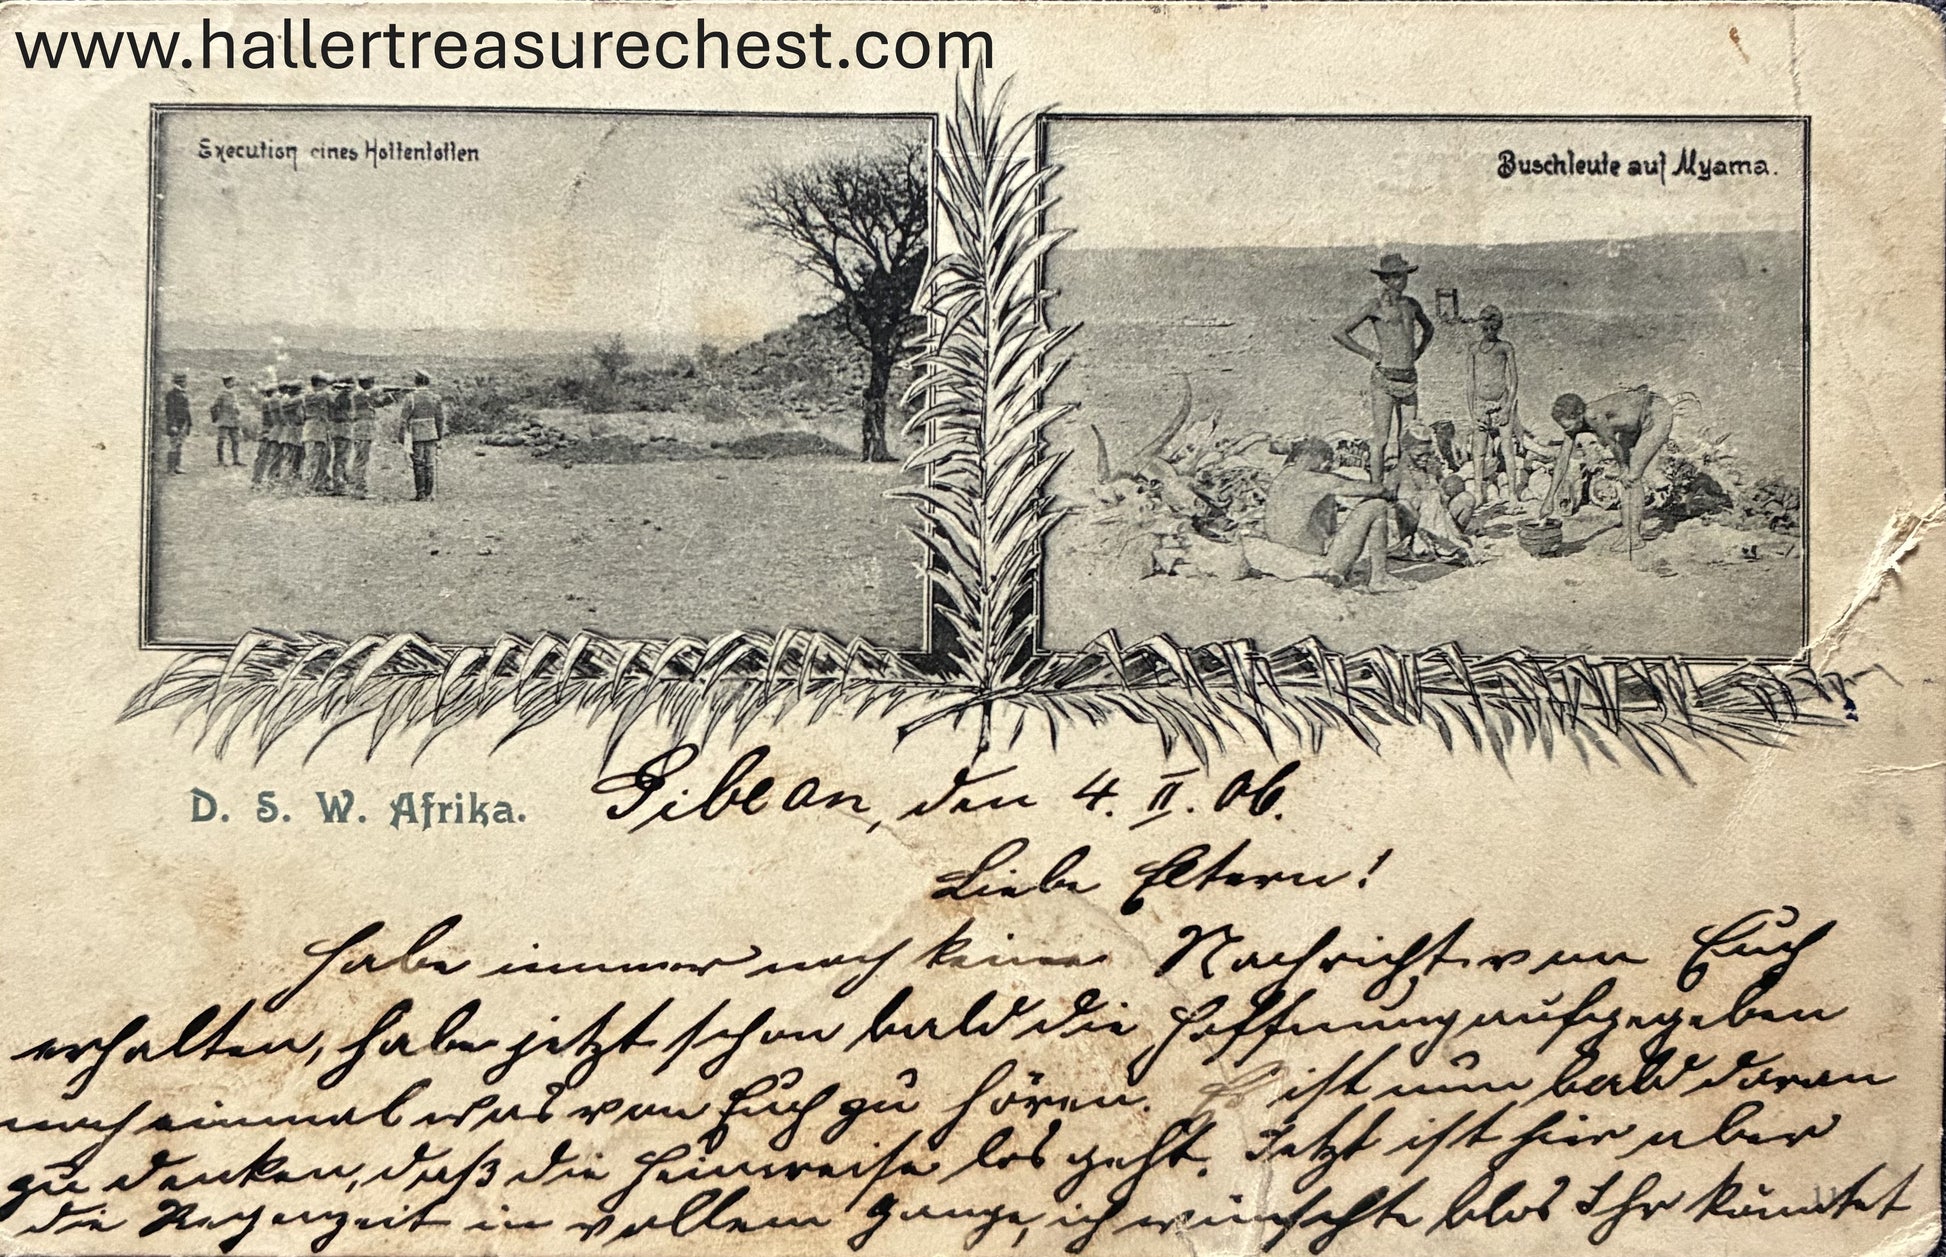 www.hallertreasurechest.com
Execution eines Hottentotten
Buschleute auf Myama.
D. S. W. Afrika.
Gibeon, den 4. II. 06.
Liebe Eltern!
Habe immer noch keine Nachricht von Euch
erhalten, habe jetzt schon bald die Hoffnung aufgegeben
noch einmal was von Euch zu hören. Es ist nun bald daran
zu denken, daß die Heimreise los geht. Jetzt ist hier aber
die Regenzeit in vollem Gange, ich wünschte blos Ihr könntet